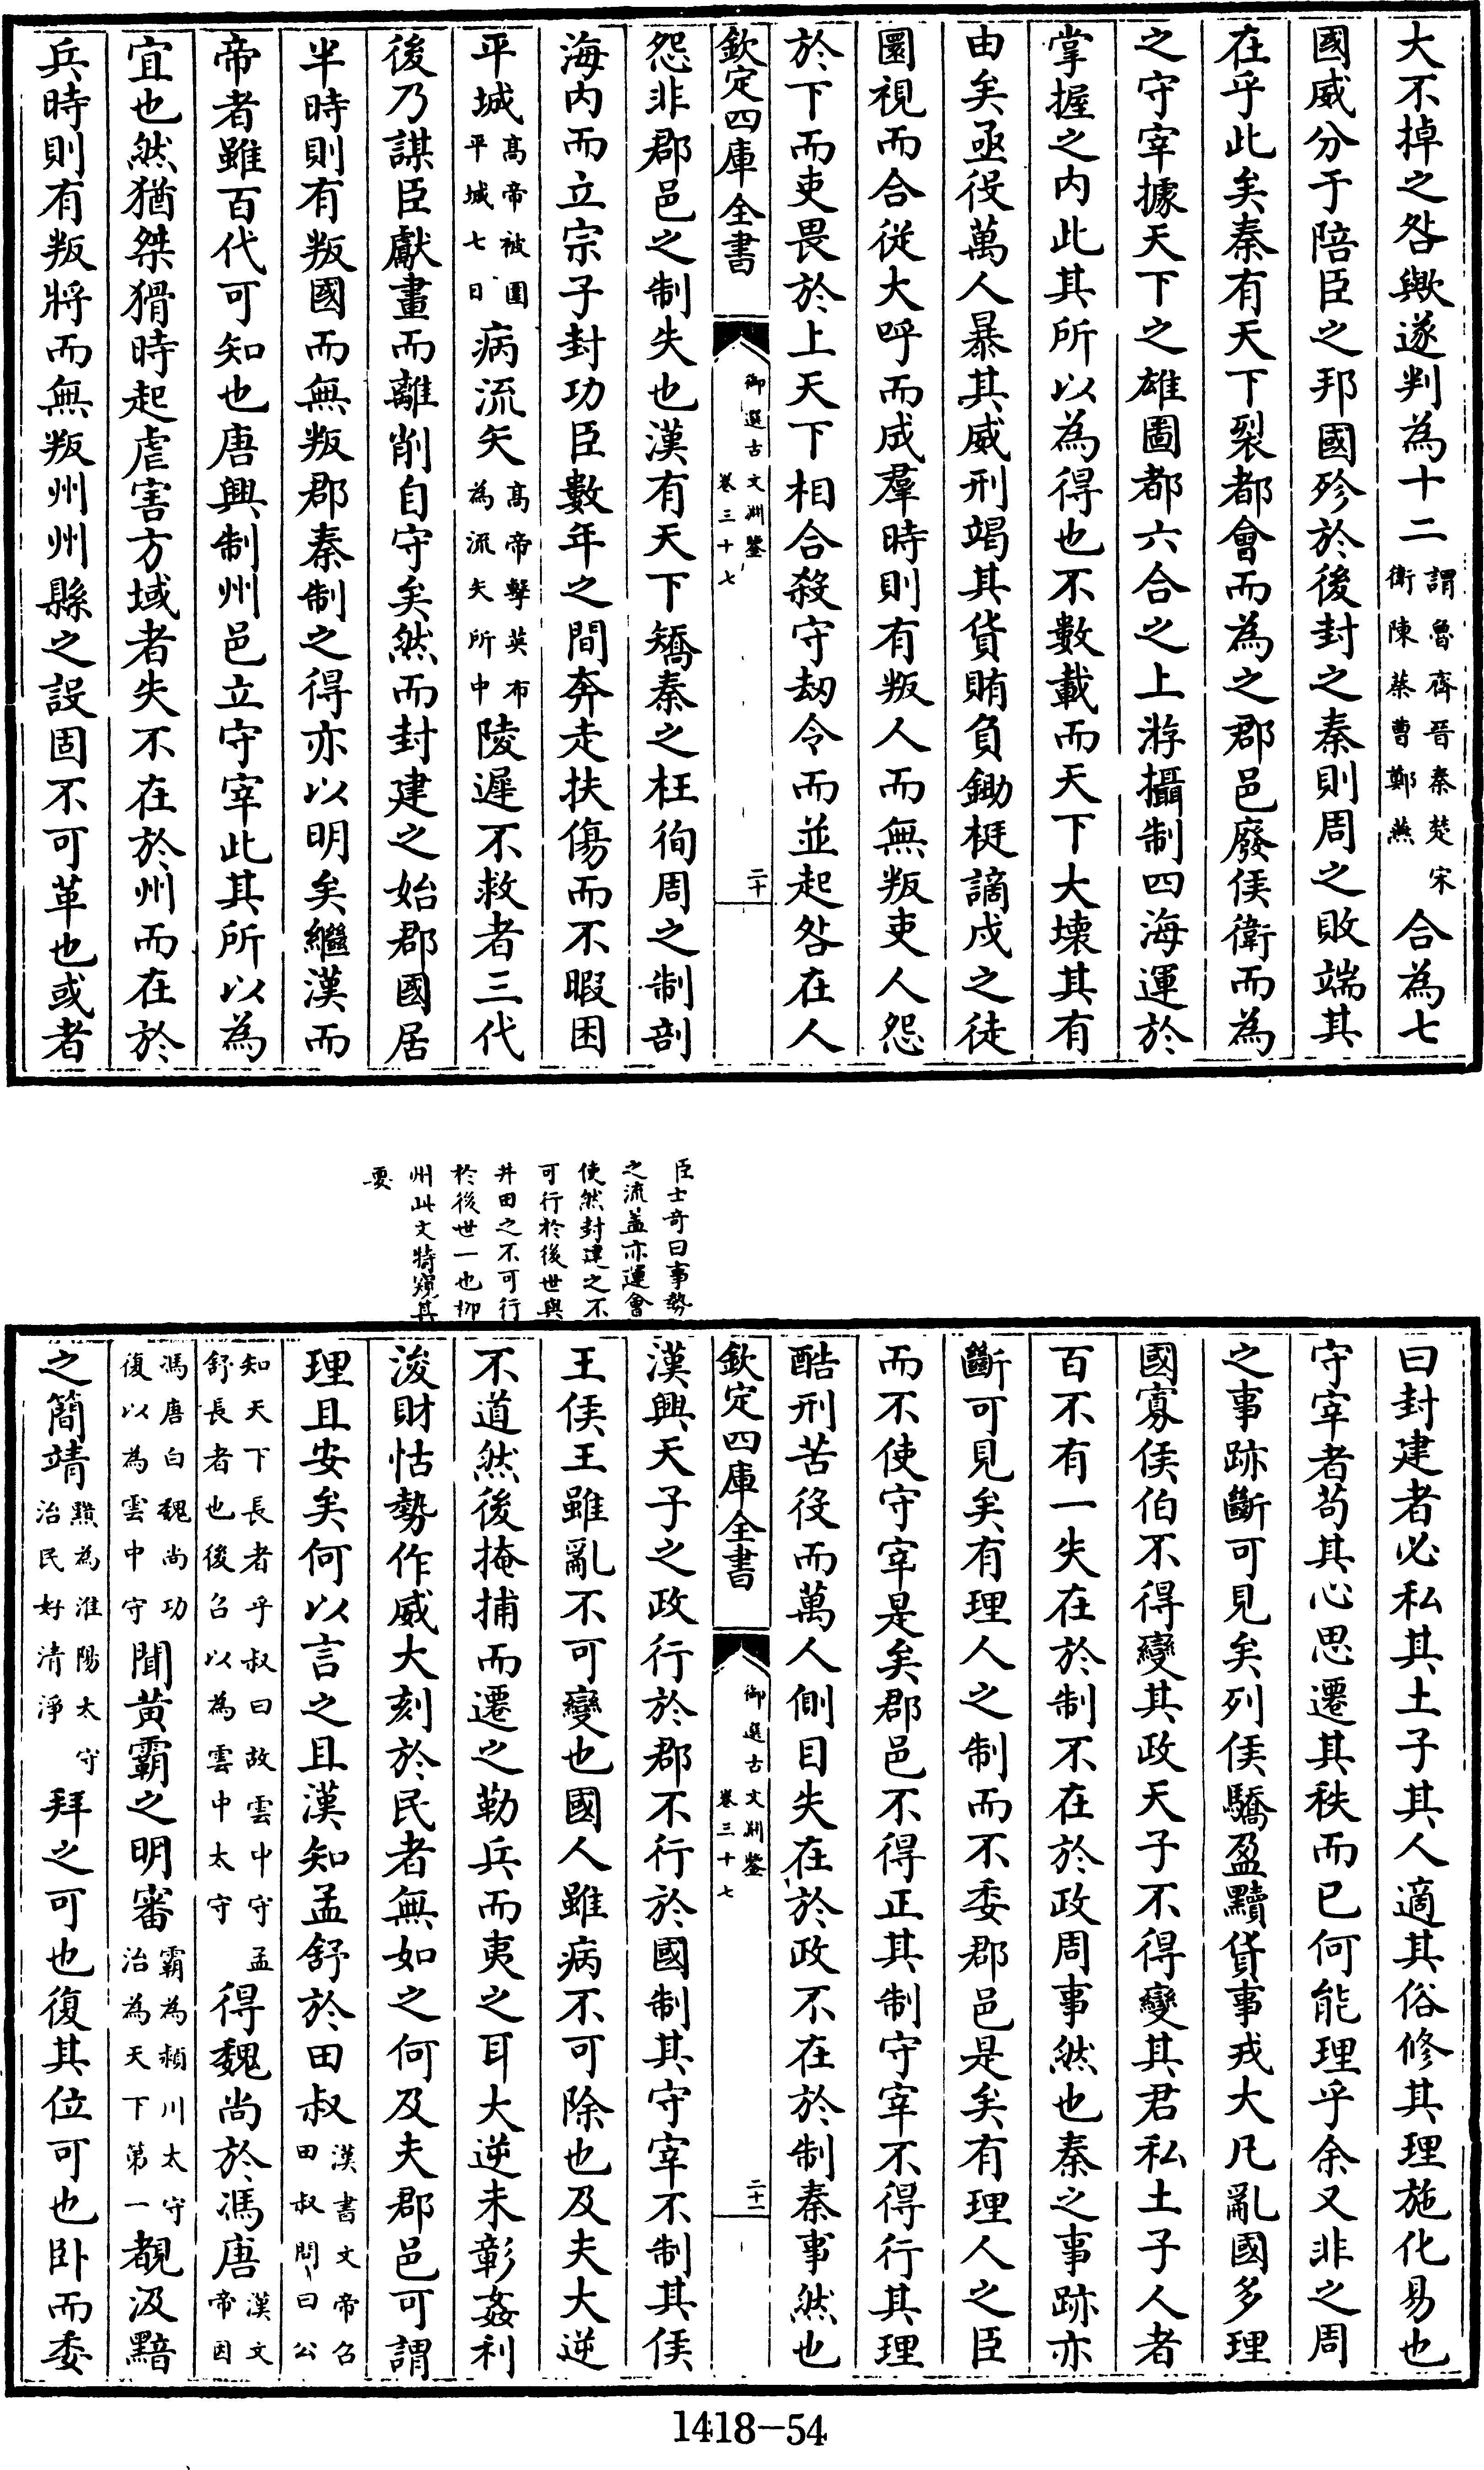 大不掉之咎歟遂判為十二謂魯齊晉秦楚宋衛陳蔡曹鄭燕合為七
國威分于陪臣之邦國殄於後封之秦則周之敗端其
在乎此矣秦有天下裂都會而為之郡邑廢侯衛而為
之守宰據天下之雄圖都六合之上游攝制四海運於
掌握之内此其所以為得也不數載而天下大壊其有
由矣亟役萬人暴其威刑竭其貨賄負鋤梃謫戍之徒
圜視而合從大呼而成羣時則有叛人而無叛吏人怨
於下而吏畏於上天下相合殺守刼令而並起咎在人
欽定四庫全書
御選古文淵鑒
卷三十七
二十
怨非郡邑之制失也漢有天下矯秦之枉徇周之制剖
海内而立宗子封功臣數年之間奔走扶傷而不暇困
平城髙帝被圍平城七日病流矢髙帝擊英布為流矢所中陵遲不救者三代
後乃謀臣獻畫而離削自守矣然而封建之始郡國居
半時則有叛國而無叛郡秦制之得亦以明矣繼漢而
帝者雖百代可知也唐興制州邑立守宰此其所以為
宜也然猶桀猾時起虐害方域者失不在於州而在於
兵時則有叛將而無叛州州縣之設固不可革也或者
臣士奇曰事勢
之流葢亦運會
使然封建之不
可行於後世與
井田之不可行
於後世一也柳
州此文特窺其
要
曰封建者必私其土子其人適其俗修其理施化易也
守宰者苟其心思遷其秩而已何能理乎余又非之周
之事跡斷可見矣列侯驕盈黷貨事戎大凡亂國多理
國寡侯伯不得變其政天子不得變其君私土子人者
百不有一失在於制不在於政周事然也秦之事跡亦
斷可見矣有理人之制而不委郡邑是矣有理人之臣
而不使守宰是矣郡邑不得正其制守宰不得行其理
酷刑苦役而萬人側目失在於政不在於制秦事然也
欽定四庫全書
御選古文淵鑒
卷三十七
二十一
漢興天子之政行於郡不行於國制其守宰不制其侯
王侯王雖亂不可變也國人雖病不可除也及夫大逆
不道然後掩捕而遷之勒兵而夷之耳大逆未彰姦利
浚財怙勢作威大刻於民者無如之何及夫郡邑可謂
理且安矣何以言之且漢知孟舒於田叔漢書文帝召田叔問曰公
知天下長者乎叔曰故雲中守孟舒長者也後召以為雲中太守得魏尚於馮唐漢文帝因
馮唐白魏尚功復以為雲中守聞黄霸之明審霸為潁川太守治為天下第一覩汲黯
之簡靖黯為淮陽太守治民好清淨拜之可也復其位可也卧而委
1418-54